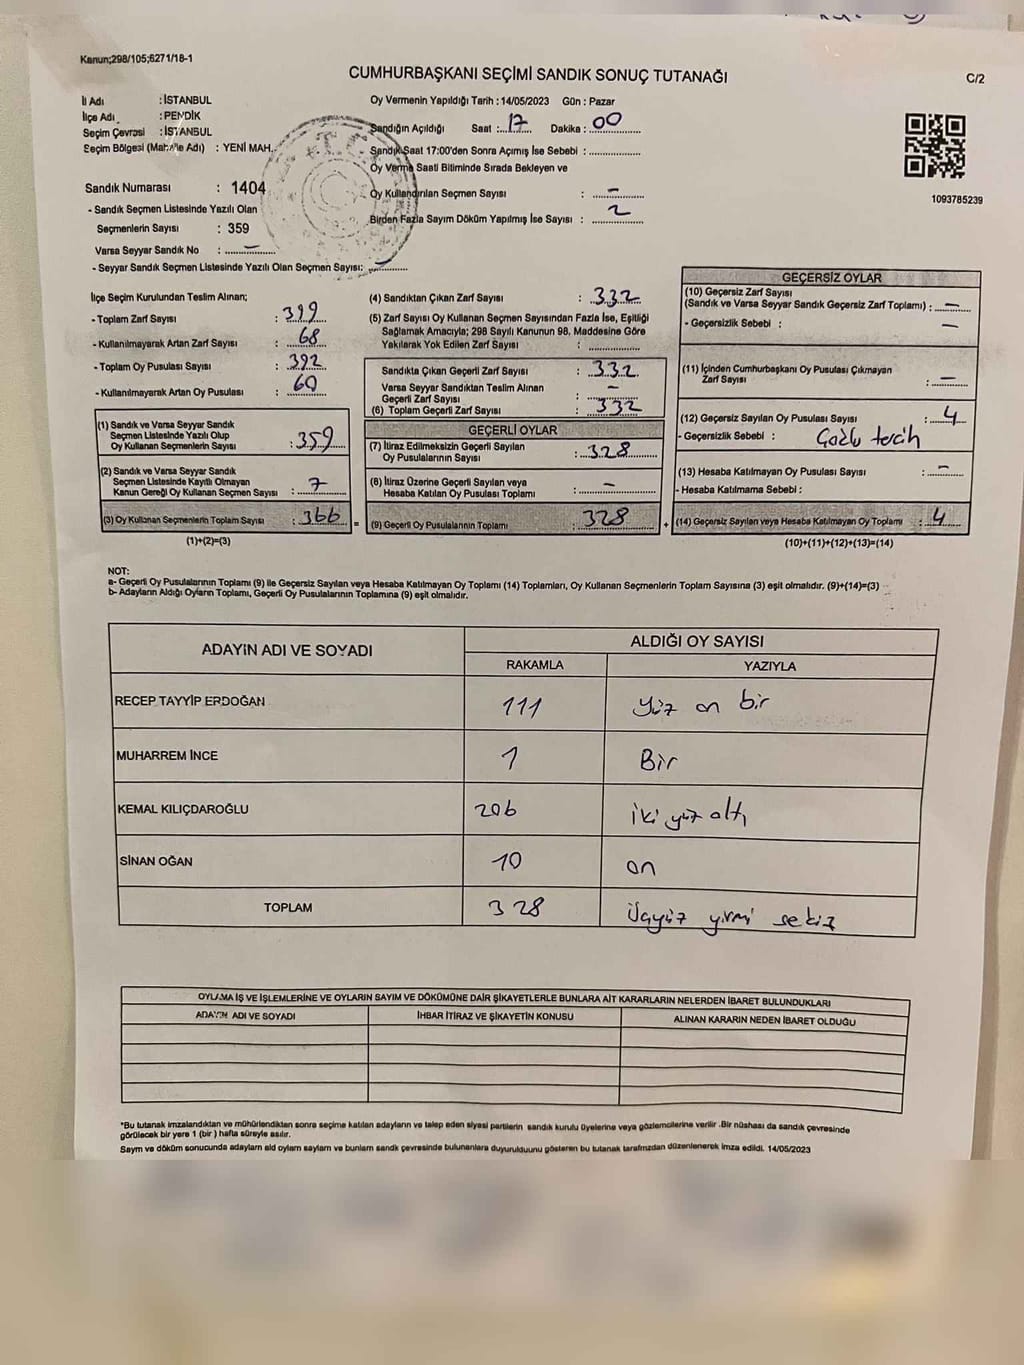 Kanun;298/105;6271/18-1
CUMHURBAŞKANI SEÇİMİ SANDIK SONUÇ TUTANAĞI
C/2
İl Adı : İSTANBUL
İlçe Adı : PENDİK
Seçim Çevresi : İSTANBUL
Seçim Bölgesi (Mahalle Adı) : YENİ MAH.
Sandık Numarası : 1404
- Sandık Seçmen Listesinde Yazılı Olan
Seçmenlerin Sayısı : 359
Varsa Seyyar Sandık No : –
- Seyyar Sandık Seçmen Listesinde Yazılı Olan Seçmen Sayısı: –
Oy Vermenin Yapıldığı Tarih : 14/05/2023 Gün : Pazar
Sandığın Açıldığı Saat : 17 Dakika : 00
Sandık Saat 17:00'den Sonra Açımış İse Sebebi :
Oy Verme Saati Bitiminde Sırada Bekleyen ve
Oy Kullandırılan Seçmen Sayısı : –
Birden Fazla Sayım Döküm Yapılmış İse Sayısı : 2
T.C.
1093785239
İlçe Seçim Kurulundan Teslim Alınan;
- Toplam Zarf Sayısı : 399
- Kullanılmayarak Artan Zarf Sayısı : 68
- Toplam Oy Pusulası Sayısı : 392
- Kullanılmayarak Artan Oy Pusulası : 60
(1) Sandık ve Varsa Seyyar Sandık
Seçmen Listesinde Yazılı Olup
Oy Kullanan Seçmenlerin Sayısı : 359
(2) Sandık ve Varsa Seyyar Sandık
Seçmen Listesinde Kayıtlı Olmayan
Kanun Gereği Oy Kullanan Seçmen Sayısı : 7
(3) Oy Kullanan Seçmenlerin Toplam Sayısı : 366
(1)+(2)=(3)
(4) Sandıktan Çıkan Zarf Sayısı : 332
(5) Zarf Sayısı Oy Kullanan Seçmen Sayısından Fazla İse, Eşitliği
Sağlamak Amacıyla; 298 Sayılı Kanunun 98. Maddesine Göre
Yakılarak Yok Edilen Zarf Sayısı :
Sandıkta Çıkan Geçerli Zarf Sayısı : 332
Varsa Seyyar Sandıktan Teslim Alınan
Geçerli Zarf Sayısı : –
(6) Toplam Geçerli Zarf Sayısı : 332
GEÇERLİ OYLAR
(7) İtiraz Edilmeksizin Geçerli Sayılan
Oy Pusulalarının Sayısı : 328
(8) İtiraz Üzerine Geçerli Sayılan veya
Hesaba Katılan Oy Pusulası Toplamı : –
= (9) Geçerli Oy Pusulalarının Toplamı : 328
GEÇERSİZ OYLAR
(10) Geçersiz Zarf Sayısı
(Sandık ve Varsa Seyyar Sandık Geçersiz Zarf Toplamı) : –
- Geçersizlik Sebebi : –
(11) İçinden Cumhurbaşkanı Oy Pusulası Çıkmayan
Zarf Sayısı : –
(12) Geçersiz Sayılan Oy Pusulası Sayısı : 4
- Geçersizlik Sebebi : Çoklu tercih
(13) Hesaba Katılmayan Oy Pusulası Sayısı : –
- Hesaba Katılmama Sebebi :
+ (14) Geçersiz Sayılan veya Hesaba Katılmayan Oy Toplamı : 4
(10)+(11)+(12)+(13)=(14)
NOT:
a- Geçerli Oy Pusulalarının Toplamı (9) ile Geçersiz Sayılan veya Hesaba Katılmayan Oy Toplamı (14) Toplamları, Oy Kullanan Seçmenlerin Toplam Sayısına (3) eşit olmalıdır. (9)+(14)=(3)
b- Adayların Aldığı Oyların Toplamı, Geçerli Oy Pusulalarının Toplamına (9) eşit olmalıdır.
ADAYIN ADI VE SOYADI
ALDIĞI OY SAYISI
RAKAMLA YAZIYLA
RECEP TAYYİP ERDOĞAN 111 Yüz on bir
MUHARREM İNCE 1 Bir
KEMAL KILIÇDAROĞLU 206 İki yüz altı
SİNAN OĞAN 10 on
TOPLAM 328 Üçyüz yirmi sekiz
OYLAMA İŞ VE İŞLEMLERİNE VE OYLARIN SAYIM VE DÖKÜMÜNE DAİR ŞİKAYETLERLE BUNLARA AİT KARARLARIN NELERDEN İBARET BULUNDUKLARI
ADAYIN ADI VE SOYADI İHBAR İTİRAZ VE ŞİKAYETİN KONUSU ALINAN KARARIN NEDEN İBARET OLDUĞU
*Bu tutanak imzalandıktan ve mühürlendikten sonra seçime katılan adayların ve talep eden siyasi partilerin sandık kurulu üyelerine veya gözlemcilerine verilir .Bir nüshası da sandık çevresinde
görülecek bir yere 1 (bir ) hafta süreyle asılır.
Sayım ve döküm sonucunda adayların ald oyların sayların ve bunların sandk çevresinde bulunanlara duyurulduunu gösteren bu tutanak tarafmzdan düzenlenerek imza edildi. 14/05/2023